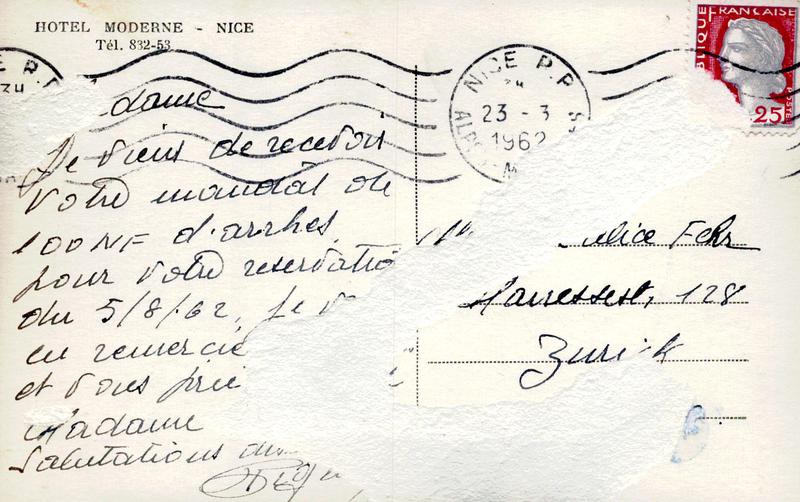 HOTEL MODERNE - NICE
Tél. 832-53
dame
Je viens de recevoir
votre mandat de
100 NF d'arrhes
pour votre reservatio
du 5/8/62, Je v
en remercie
et vous prie
Madame
Salutations
NICE P.P
23 - 3
1962
FRANCAISE
POSTES
25
M
Alice Fehr
128
Zurich